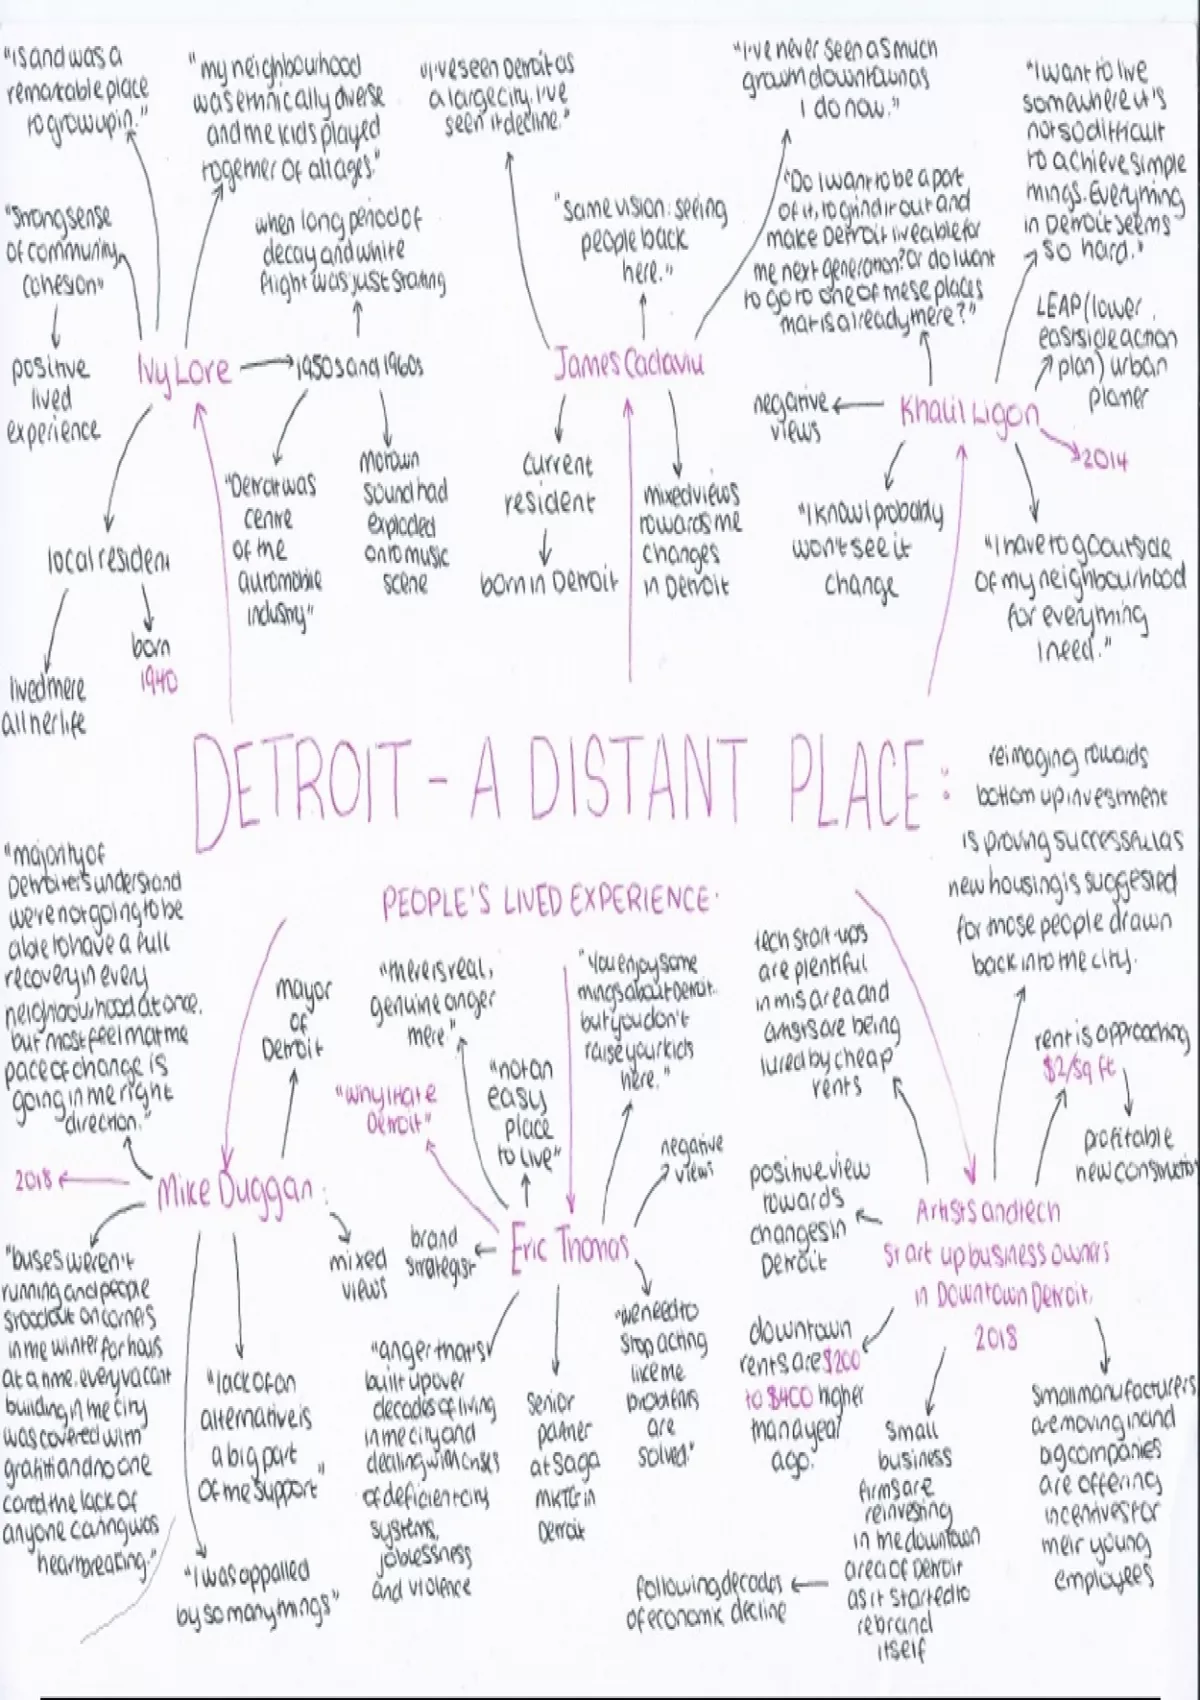 "is and was a
remarkable place
to grow up in."
"my neighbourhood
was ethnically diverse
and the kids played
together of all ages."
"I've seen Detroit as
a large city. I've
seen it decline."
"I've never seen as much
growth downtown as
I do now."
"I want to live
somewhere it's
not so difficult
to achieve simple
things. Everything
in Detroit seems
so hard."
"Strong sense
of community
cohesion"
when long period of
decay and white
flight was just starting
"Same vision: seeing
people back
here."
"Do I want to be a part
of it, to grind it out and
make Detroit liveable for
the next generation? Or do I want
to go to one of these places
that is already there?"
LEAP (lower
eastside action
plan) urban
planer
positive
lived
experience
Ivy Lore
1950s and 1960s
James Cadaviu
negative
views
Khalil Ligon
2014
local resident
lived there
all her life
born
1940
"Detroit was
centre
of the
automobile
industry"
Motown
sound had
exploded
onto music
scene
current
resident
born in Detroit
mixed views
towards the
changes
in Detroit
"I know I probably
won't see it
change
"I have to go outside
of my neighbourhood
for everything
I need."
DETROIT - A DISTANT PLACE:
PEOPLE'S LIVED EXPERIENCE.
reimaging towards
bottom up investment
is proving successful as
new housing is suggested
for those people drawn
back into the city.
"majority of
Detroiters understand
we're not going to be
able to have a full
recovery in every
neighbourhood at once,
but most feel that the
pace of change is
going in the right
direction."
mayor
of
Detroit
2018
Mike Duggan:
mixed
views
"buses weren't
running and people
stood out on corners
in the winter for hours
at a time. every vacant
building in the city
was covered with
graffiti and no one
cared the lack of
anyone caring was
heartbreaking."
"lack of an
alternative is
a big part
of the support"
"I was appalled
by so many things"
"there is real,
genuine anger
there"
"why I hate
Detroit"
"not an
easy
place
to live"
"You enjoy some
things about Detroit.
but you don't
raise your kids
here."
negative
views
brand
strategist
Eric Thomas
"anger that's
built up over
decades of living
in the city and
dealing with crises
of deficient city
systems,
joblessness
and violence
senior
partner
at Saga
MKTG in
Detroit
"we need to
stop acting
like the
problems
are
solved."
tech start-ups
are plentiful
in this area and
artists are being
lured by cheap
rents
rent is approaching
$2/sq ft
profitable
new construction
positive view
towards
changes in
Detroit
Artists and tech
start up business owners
in Downtown Detroit,
2018
downtown
rents are $200
to $400 higher
than a year
ago.
small
business
firms are
reinvesting
in the downtown
area of Detroit
as it started to
rebrand
itself
following decades
of economic decline
small manufacturers
are moving in and
big companies
are offering
incentives for
their young
employees